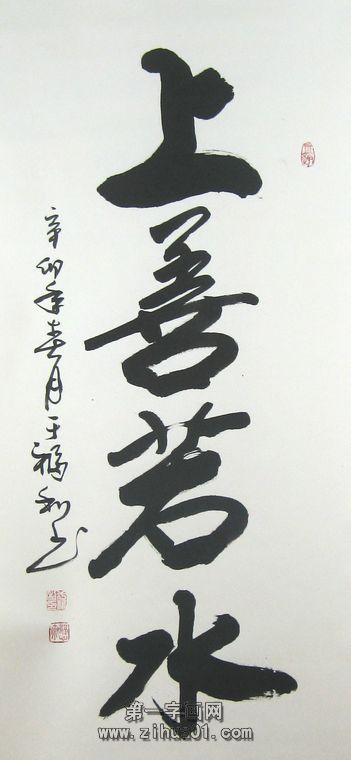 上善若水
辛卯年春月于福利书
第一字画网
www.zihua01.com